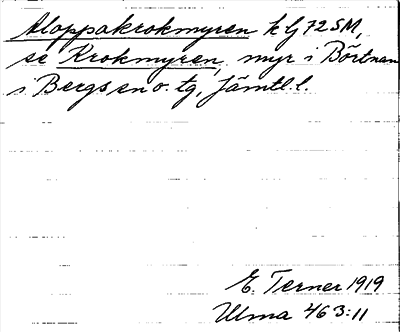 Aloppakrokmyren k G 72 SM,
se Krokmyren, myr i Börtnan
i Bergs sn o. tg, Jämtl. l.
E. Terner 1919
Ulma 463:11